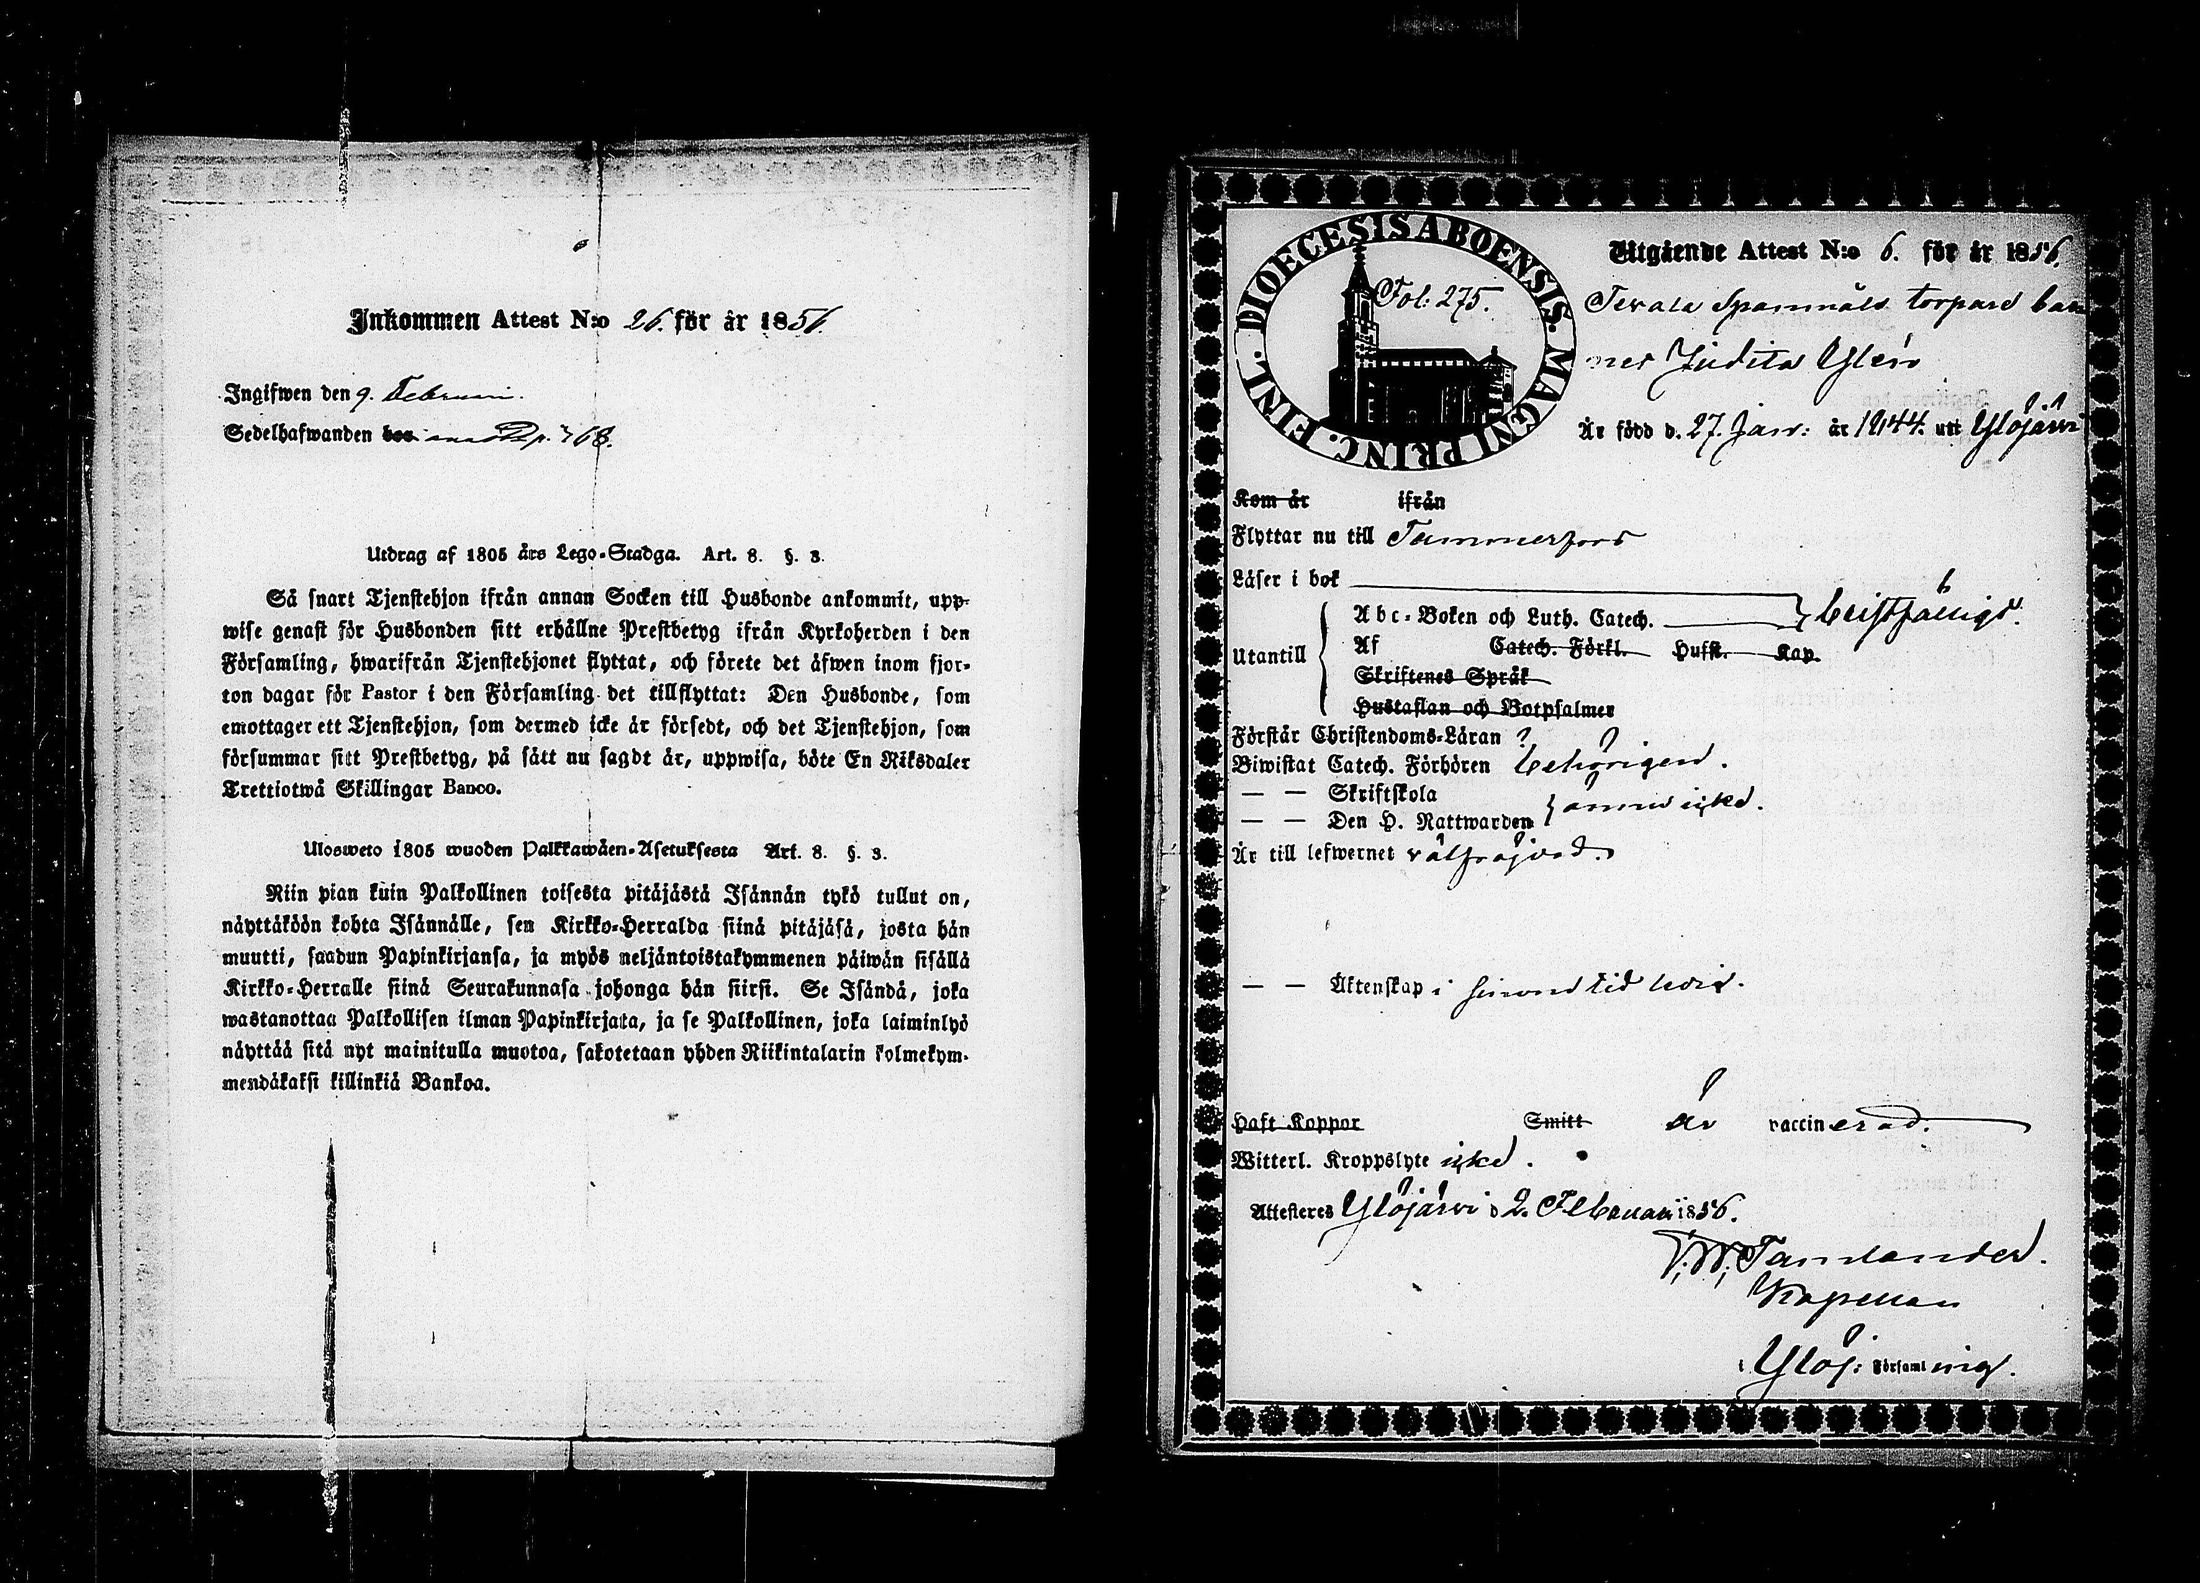 Inkommen Attest N:o 26. för år 1856.
Ingifwen den 9. Februari.
Sedelhafwanden bor p. 768.
Utdrag af 1805 års Lego-Stadga. Art. 8. §. 3.
Så snart Tjenstehjon ifrån annan Socken till Husbonde ankommit, upp-
wise genast för Husbonden sitt erhållne Prestbetyg ifrån Kyrkoherden i den
Församling, hwarifrån Tjenstehjonet flyttat, och förete det äfwen inom fjor-
ton dagar för Pastor i den Församling det tillflyttat: Den Husbonde, som
emottager ett Tjenstehjon, som dermed icke är försedt, och det Tjenstehjon, som
försummar sitt Prestbetyg, på sätt nu sagdt är, uppwisa, böte En Riksdaler
Trettiotwå Skillingar Banco.
Ulosweto 1805 wuoden Palkkawäen-Asetuksesta Art. 8. §. 3.
Niin pian kuin Palkollinen toisesta pitäjästä Isännän tykö tullut on,
näyttäköön kohta Isännälle, sen Kirkko-Herralda siinä pitäjäsä, josta hän
muutti, saadun Papinkirjansa, ja myös neljäntoistakymmenen päiwän sisällä
Kirkko-Herralle siinä Seurakunnasa johonga hän siirsi. Se Isändä, joka
wastanottaa Palkollisen ilman Papinkirjata, ja se Palkollinen, joka laiminlyö
näyttää sitä nyt mainitulla muotoa, sakotetaan yhden Riikintalarin kolmekym-
mendäkaksi killinkiä Bankoa.
DIOECESIS ABOENSIS. MAGNI PRINC. FINL.
Fol: 275.
Utgående Attest N:o 6. för år 1856.
torpare bar
net Judita Ylen
Är född d. 27. Jan: år 1844. uti Ylöjärvi
Kom år ifrån
Flyttar nu till Tammerfors
Läser i bok
Abc-Boken och Luth. Catech. beistfälligt.
Utantill
Af Catech. Förkl. Husst. Kap.
Skriftenes Språk
Hustaflan och Botpsalmer
Förstår Christendoms-Läran ?
Biwistat Catech. Förhören behörigen.
— — Skriftskola
— — Den H. Nattwarden ännu icke.
Är till lefwernet välfrejdad.
— — Äktenskap i sinom tid ledig.
Haft Koppor Smitt är vaccinerad.
Witterl. Kroppslyte icke.
Attesteres Ylöjärvi d 2. Februari 1856.
Tamlander.
Kapellan
i Ylöj: Församling.